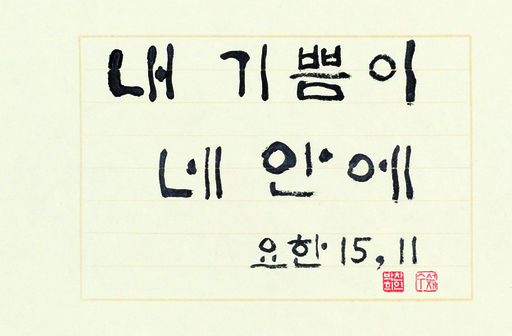 내 기쁨이
네 안에
요한 15, 11